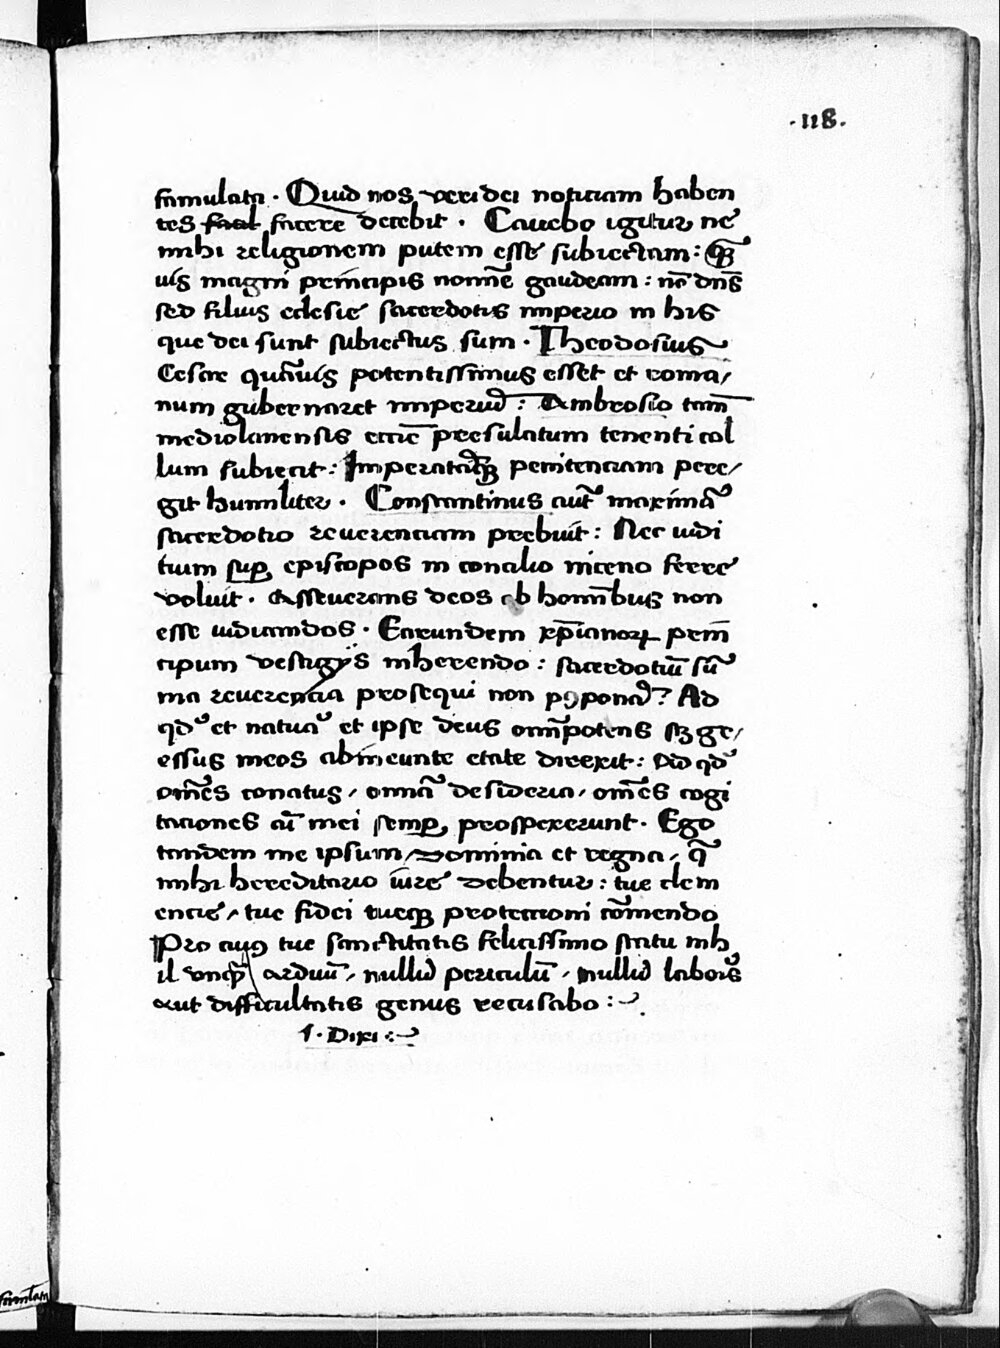 ·118·
famulata · Quid nos veri dei noticiam haben
tes facere decebit · Cauebo igitur ne
mihi religionem putem esse subiectam : Qꝫ̃
uis magni principis nomīe gaudeam : nō dn̄s
sed filius eclesie sacerdotis imperio in his
que dei sunt subiectus sum · Theodosius
Cesar quāuis potentissimus esset et roma/
num gubernaret imperiū : Ambrosio tam̄
mediolanensis eccīe presulatum tenenti col
lum subiecit : Imperatāqꝫ penitenciam pere/
git humiliter · Constantinus aut̄ maximā
sacerdotio reuerenciam prebuit : Nec iudi
tium suꝑ episcopos in concilio niceno ferre
voluit · Asseuerans deos ab homībus non
esse iudicandos · Earundem xp̄ianoꝝ prin̄
cipum vestigijs inherendo : sacerdotiū sū
ma reuerencia prosequi non pꝯponā? Ad
qd̄ et natura et ipse deus omīpotens ꝫ gre/
essus meos ab ineunte etate direxit : Ad qd̄
om̄es conatus / omnia desideria / om̄es cogi
taciones aī mei semꝑ prospexerunt · Ego
tandem me ipsum / dominia et regna / q̄
mihi hereditario iure debentur : tue clem
encie / tue fidei tueqꝫ protectioni cōmendo
Pro cuiꝯ tue sanctitatis felicissimo statu nih
il vnqꝫ̃ arduū / nullū periculū / nullū laboris
aut difficultatis genus recusabo :~
· Dixi :~